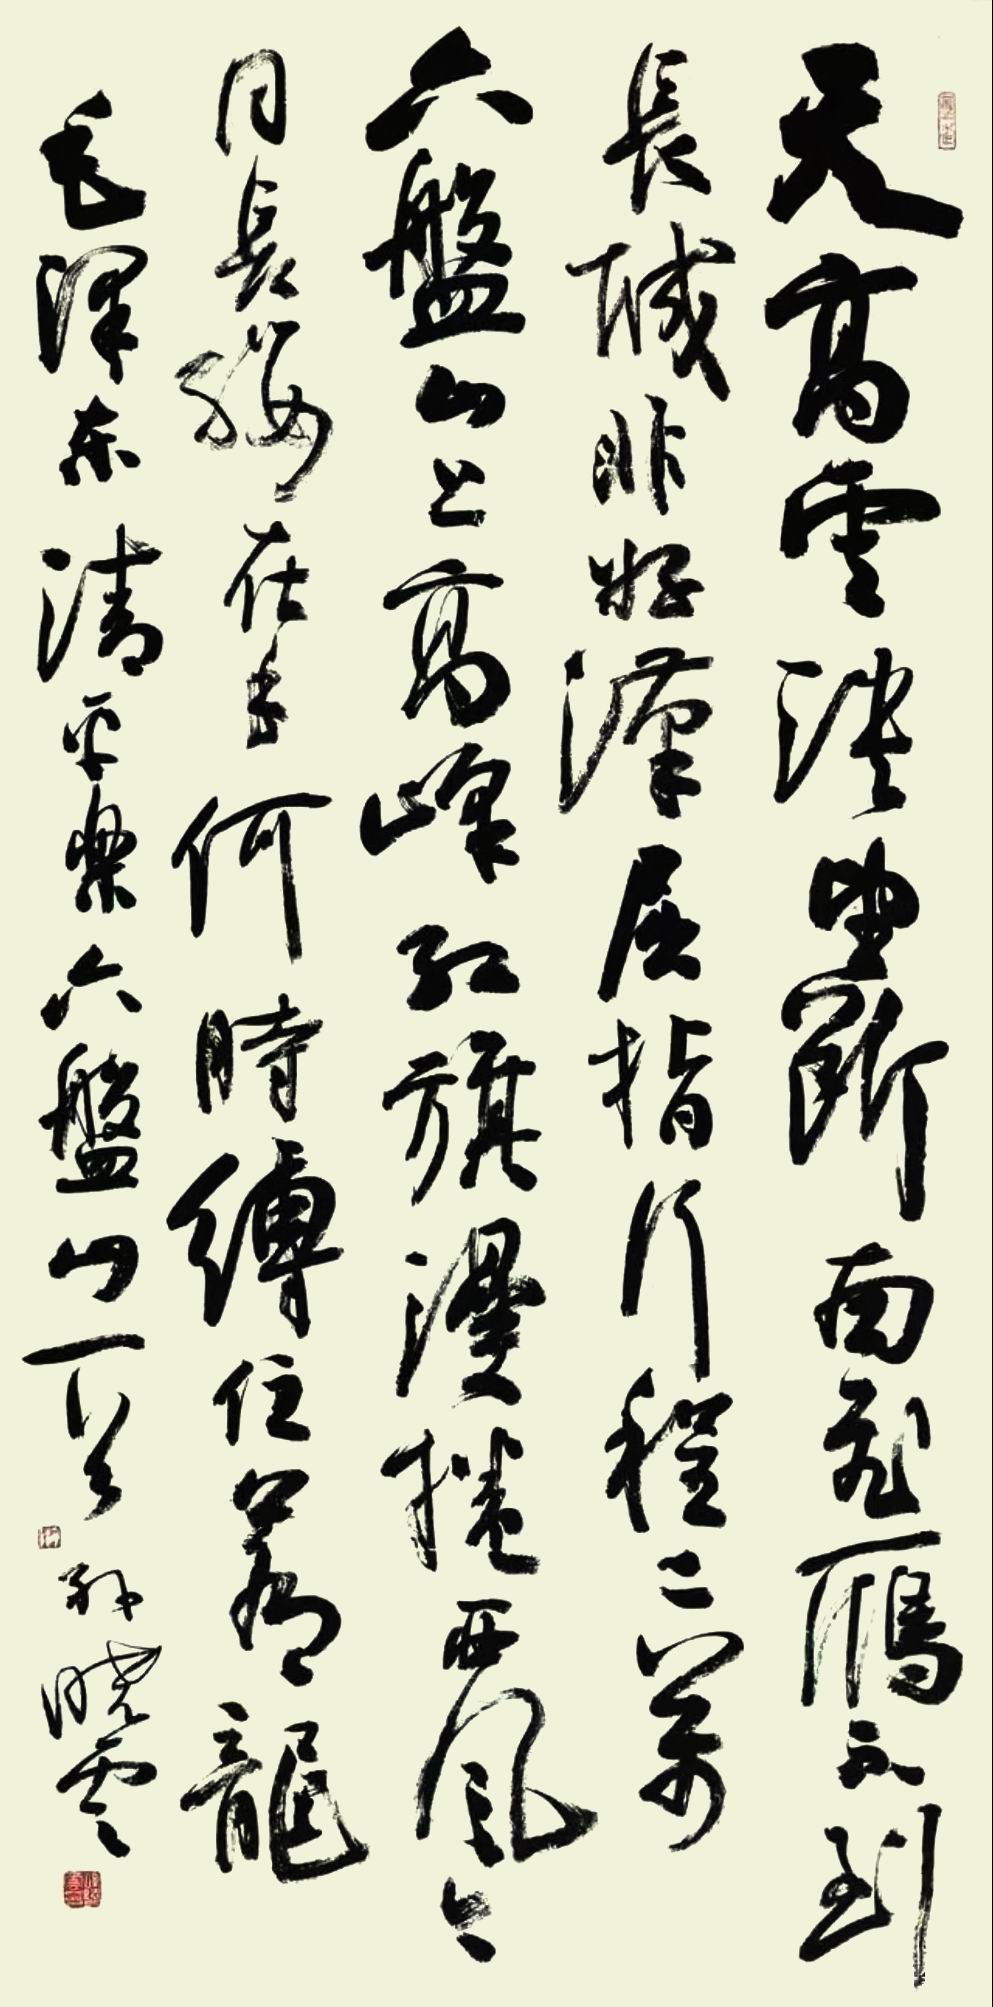 天高雲淡望斷南飛雁不到
長城非好漢屈指行程二萬
六盤山上高峰紅旗漫捲西風今
日長纓在手何時縛住蒼龍
毛澤東清平樂六盤山一首 孫曉雲